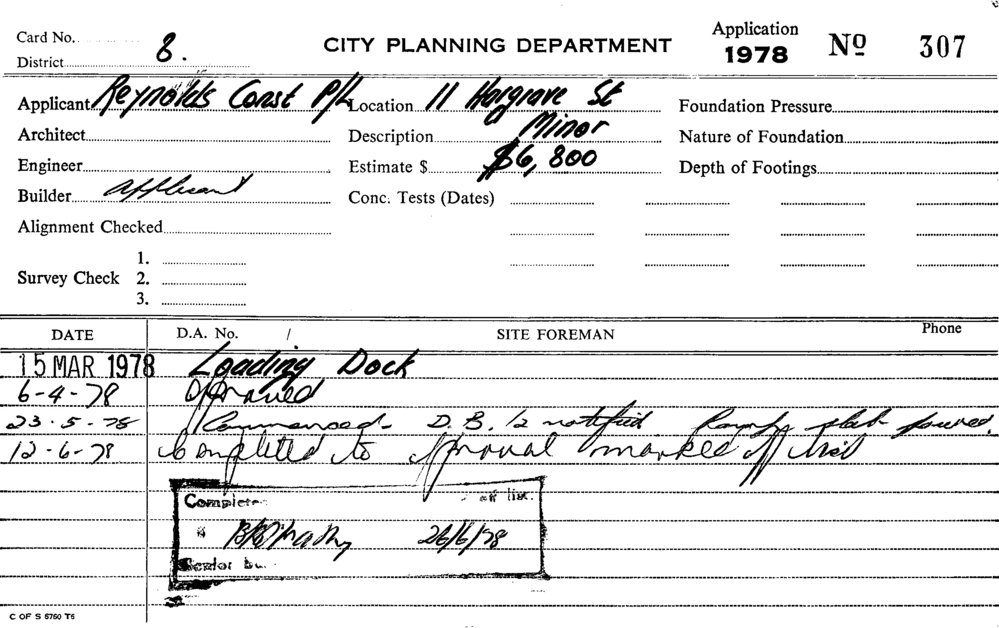 Card No. CITY PLANNING DEPARTMENT Application 1978 Nº 307
District 8.
Applicant Reynolds Const P/L Location 11 Hargrave St Foundation Pressure
Architect Description Minor Nature of Foundation
Engineer Estimate $ $6,800 Depth of Footings
Builder applicant Conc. Tests (Dates)
Alignment Checked
1.
Survey Check 2.
3.
DATE D.A. No. / SITE FOREMAN Phone
15 MAR 1978 Loading Dock
6-4-78 Approved
23.5-78 Commenced. D.B. notified slab poured.
12-6-78 Completed to approval marked off list
Complete off list
26/6/78
Senior bu
C OF S 5760 T5